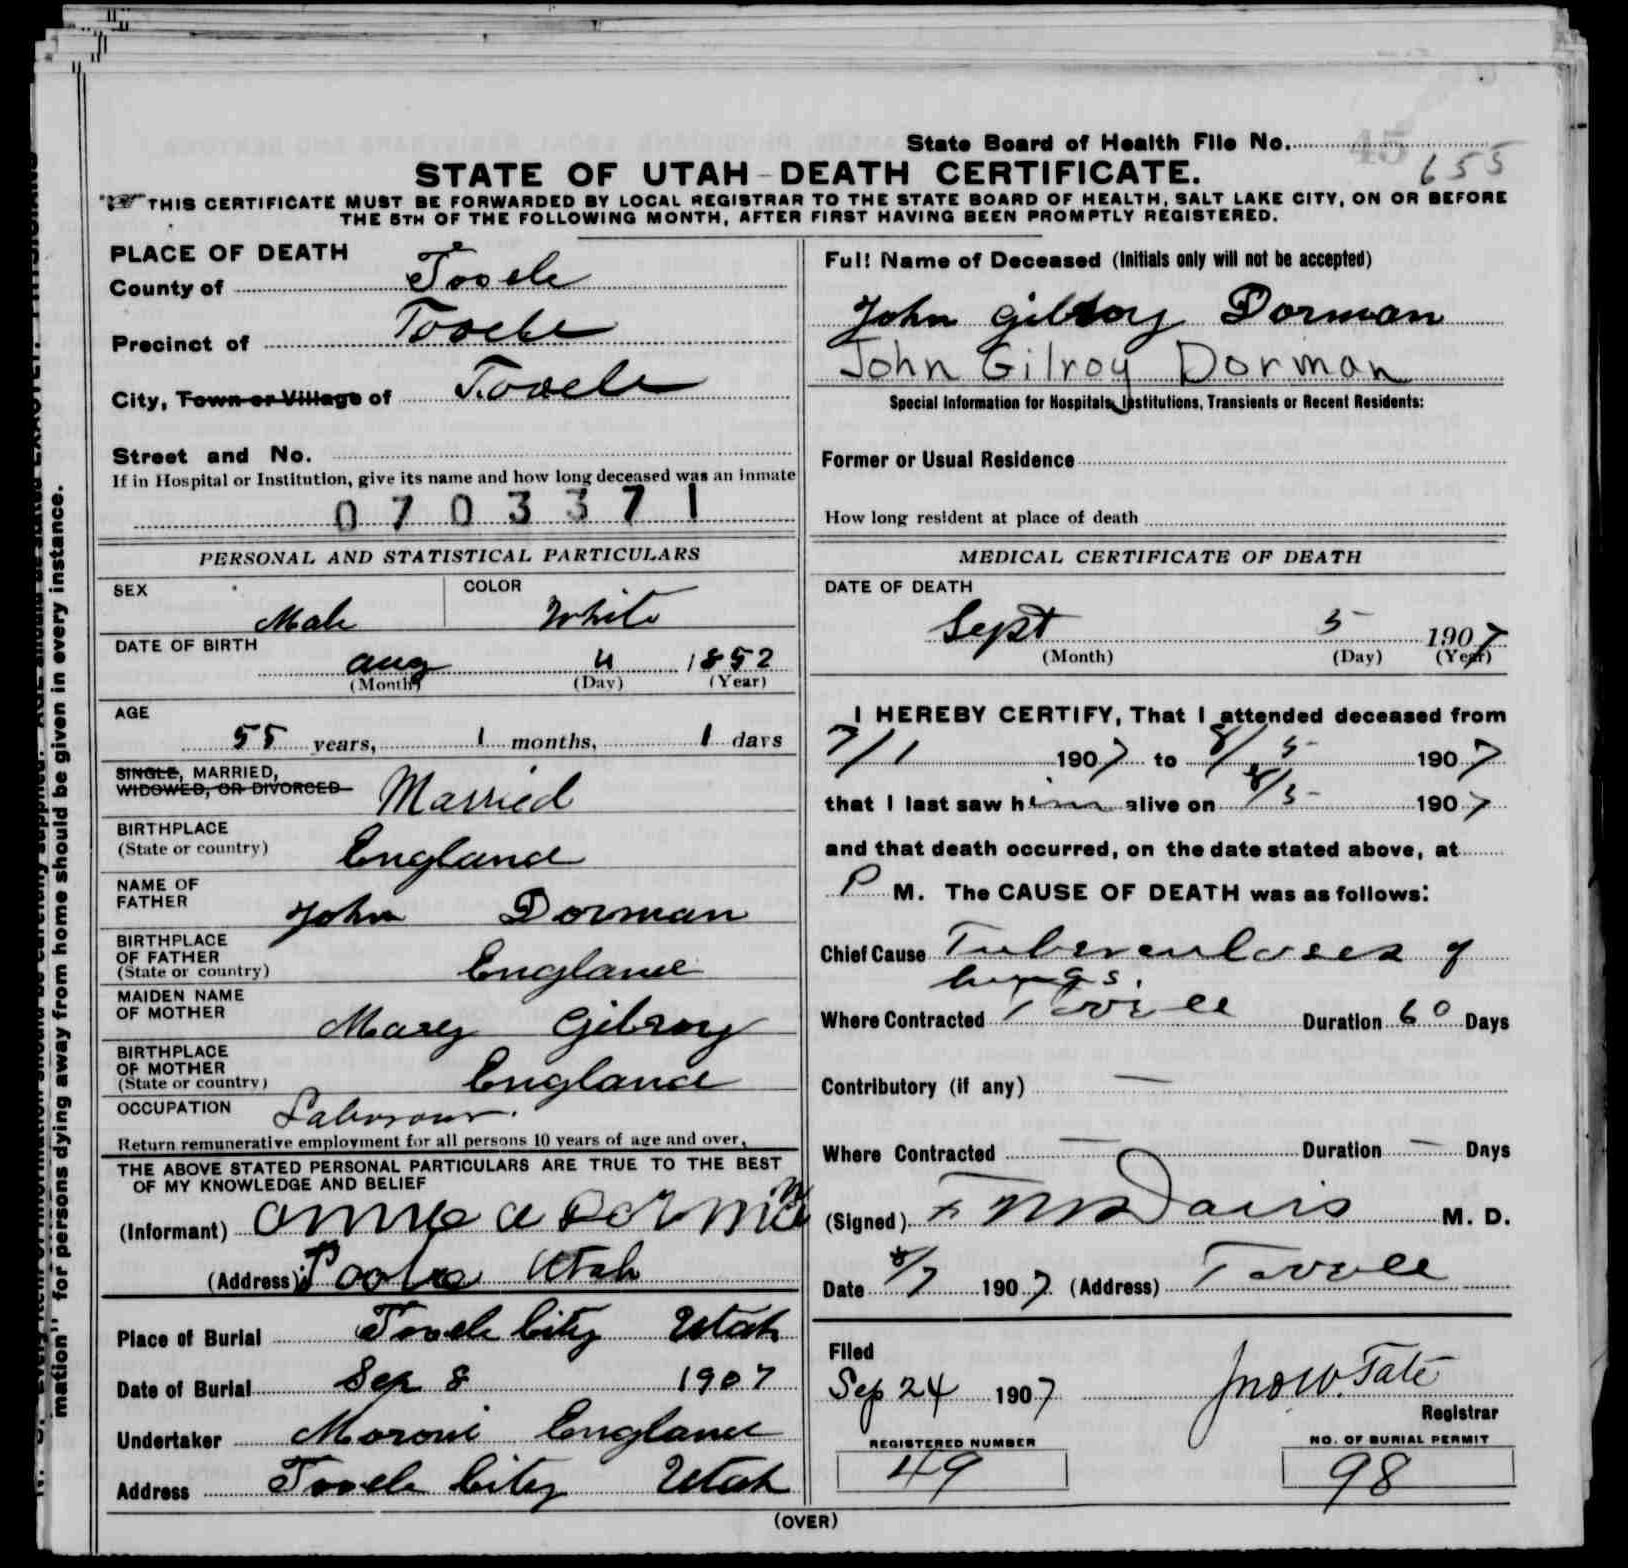 State Board of Health File No. 45
655
STATE OF UTAH-DEATH CERTIFICATE.
THIS CERTIFICATE MUST BE FORWARDED BY LOCAL REGISTRAR TO THE STATE BOARD OF HEALTH, SALT LAKE CITY, ON OR BEFORE
THE 5TH OF THE FOLLOWING MONTH, AFTER FIRST HAVING BEEN PROMPTLY REGISTERED.
PLACE OF DEATH
County of Tooele
Precinct of Tooele
City, Town or Village of Tooele
Street and No.
If in Hospital or Institution, give its name and how long deceased was an inmate
0703371
Full Name of Deceased (Initials only will not be accepted)
John Gilroy Dorman
John Gilroy Dorman
Special Information for Hospitals, Institutions, Transients or Recent Residents:
Former or Usual Residence
How long resident at place of death
PERSONAL AND STATISTICAL PARTICULARS
SEX Male
COLOR White
DATE OF BIRTH
Aug 4 1852
(Month) (Day) (Year)
AGE
55 years, 1 months, 1 days
SINGLE, MARRIED,
WIDOWED, OR DIVORCED Married
BIRTHPLACE
(State or country) England
NAME OF
FATHER John Dorman
BIRTHPLACE
OF FATHER
(State or country) England
MAIDEN NAME
OF MOTHER Mary Gilroy
BIRTHPLACE
OF MOTHER
(State or country) England
OCCUPATION Laborour.
Return remunerative employment for all persons 10 years of age and over.
THE ABOVE STATED PERSONAL PARTICULARS ARE TRUE TO THE BEST
OF MY KNOWLEDGE AND BELIEF
(Informant) Annie a Dorman
(Address) Utah
Place of Burial Tooele City Utah
Date of Burial Sep 8 1907
Undertaker Moroni England
Address Tooele City Utah
MEDICAL CERTIFICATE OF DEATH
DATE OF DEATH
Sept 5 1907
(Month) (Day) (Year)
I HEREBY CERTIFY, That I attended deceased from
7/1 1907 to 8/5 1907
that I last saw him alive on 8/5 1907
and that death occurred, on the date stated above, at
P M. The CAUSE OF DEATH was as follows:
Chief Cause Tuberculoses of
lungs.
Where Contracted Tooele Duration 60 Days
Contributory (if any) —
Where Contracted — Duration — Days
(Signed) F M Davis M. D.
Date 8/7 1907 (Address) Tooele
Filed
Sep 24 1907 Jno W. Tate
Registrar
REGISTERED NUMBER
49
NO. OF BURIAL PERMIT
98
(OVER)
mation" for persons dying away from home should be given in every instance.